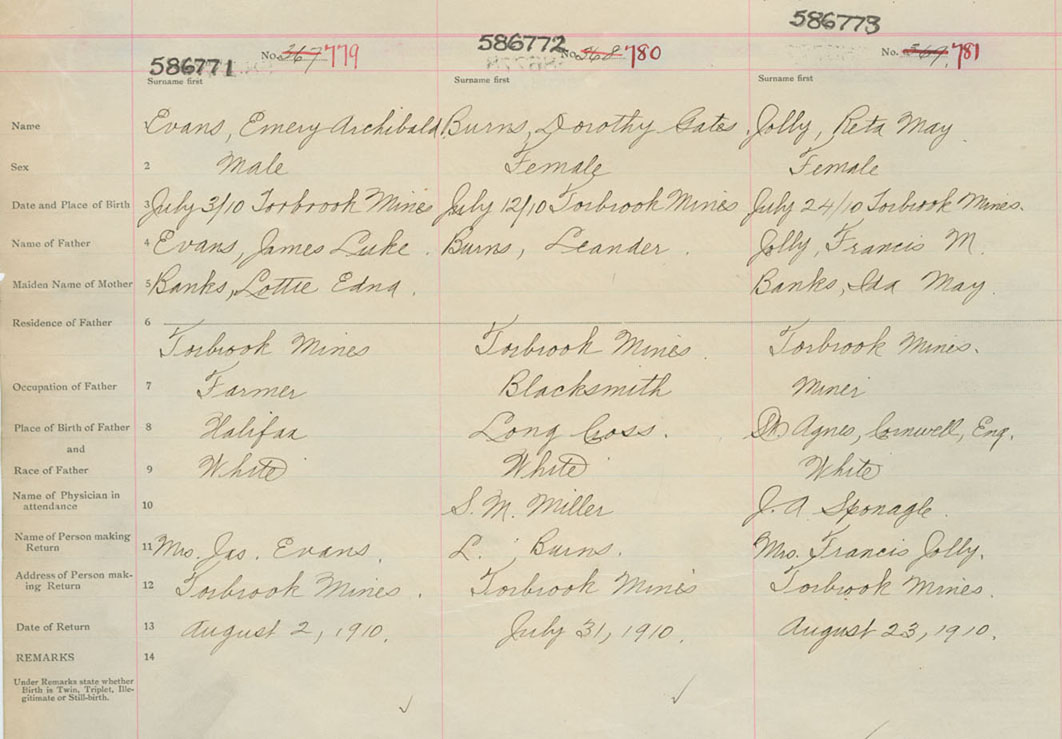 586771 586772 586773
No. 367 779 No. 368 780 No. 369 781
Surname first Surname first Surname first
Name Evans, Emery Archibald Burns, Dorothy Gates. Jolly, Reta May.
Sex 2 Male Female Female
Date and Place of Birth 3 July 3/10 Torbrook Mines July 12/10 Torbrook Mines July 24/10 Torbrook Mines.
Name of Father 4 Evans, James Luke. Burns, Leander. Jolly, Francis M.
Maiden Name of Mother 5 Banks, Lottie Edna. Banks, Ida May
Residence of Father 6
Torbrook Mines Torbrook Mines. Torbrook Mines.
Occupation of Father 7 Farmer Blacksmith Miner
Place of Birth of Father 8 Halifax Long Coss. St Agnes, Cornwell, Eng.
and
Race of Father 9 White White White
Name of Physician in
attendance 10 S. M. Miller J. A. Sponagle.
Name of Person making
Return 11 Mrs. Jas. Evans. L. Burns. Mrs. Francis Jolly.
Address of Person mak-
ing Return 12 Torbrook Mines. Torbrook Mines Torbrook Mines.
Date of Return 13 August 2, 1910. July 31, 1910. August 23, 1910.
REMARKS 14
Under Remarks state whether
Birth is Twin, Triplet, Ille-
gitimate or Still-birth.